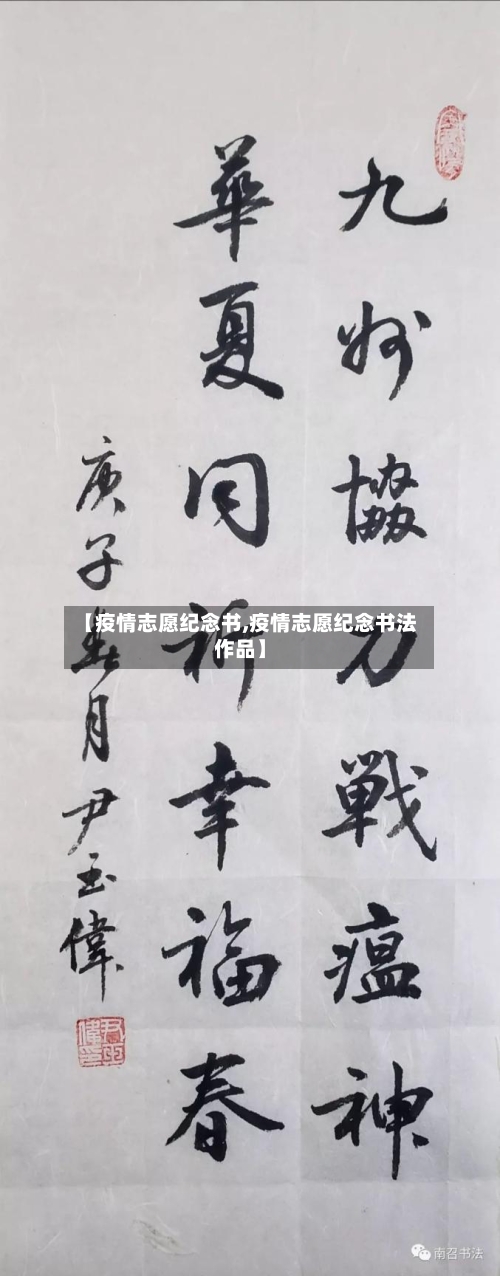 九州協力戰瘟神
華夏同祈幸福春
庚子春月尹玉偉
尹玉偉印
【疫情志愿纪念书,疫情志愿纪念书法
作品】
南召书法